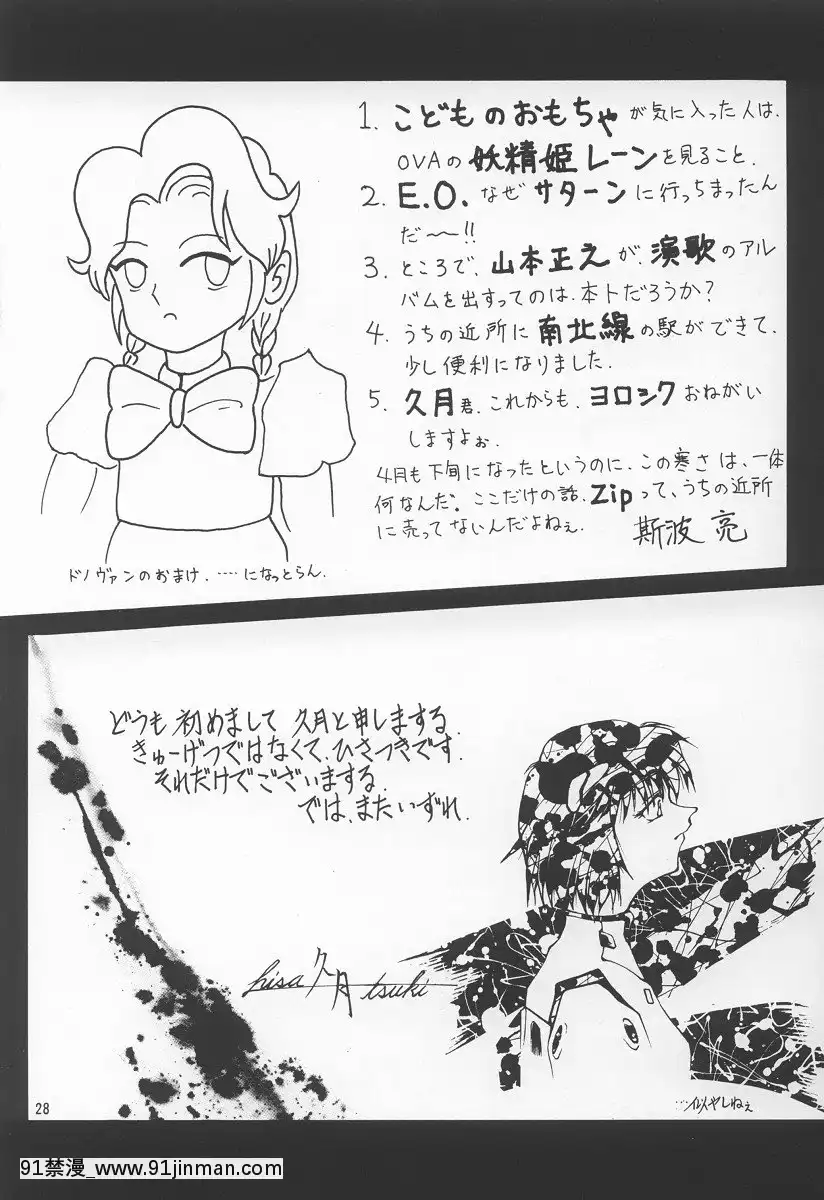 1. こどものおもちゃが気に入った人は、
OVAの妖精姫レーンを見ること.
2. E.O. なぜサターンに行っちまったん
だ〜〜!!
3. ところで、山本正之が、演歌のアル
バムを出すってのは、本トだろうか?
4. うちの近所に南北線の駅ができて、
少し便利になりました.
5. 久月君、これからも、ヨロシクおねがい
しますよぉ.
4月も下旬になったというのに、この寒さは、一体
何なんだ。ここだけの話、Zipって、うちの近所
に売ってないんだよねぇ.
斯波 亮
ドノヴァンのおまけ. ‥‥になっとらん.
どうも 初めまして 久月と申しまする.
きゅーげつではなくて、ひさつきです.
それだけでございまする.
では、またいずれ.
hisa久月tsuki
…似やしねぇ
28
91禁漫_www.91jinman.com